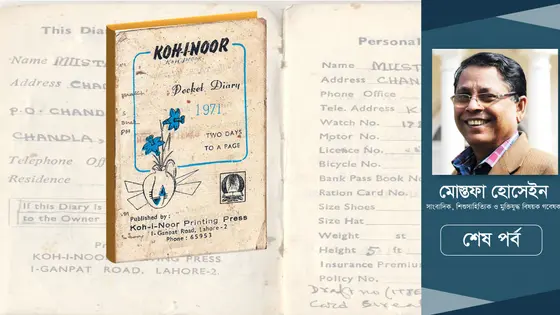 This Dia
Name MUST
Address CHA
P.O. CHAND
CHANDLA,
Telephone Off
Residence
If this Diary is
to the Owner
KOH-I-NOOR
PRESS
1-GANPAT ROAD, LAHORE-2.
KOH-I-NOOR
KOH-I-NOOR
Pocket Diary
1971
TWO DAYS
TO A PAGE
Published by :
Koh-i-Noor Printing Press
1-Ganpat Road, Lahore-2
Phone : 65953
Personal
Name MUST
Address CHAN
Phone Office
Tele. Address K
Watch No.
Mptor No.
Licence No.
Bicycle No.
Bank Pass Book N
Ration Card No.
Size Shoes
Size Hat
Weight st
Height 5 ft
Insurance Premiu
Policy No.
মোস্তফা হোসেইন
সাংবাদিক, শিশুসাহিত্যিক ও মুক্তিযুদ্ধ বিষয়ক গবেষক
শেষ পর্ব